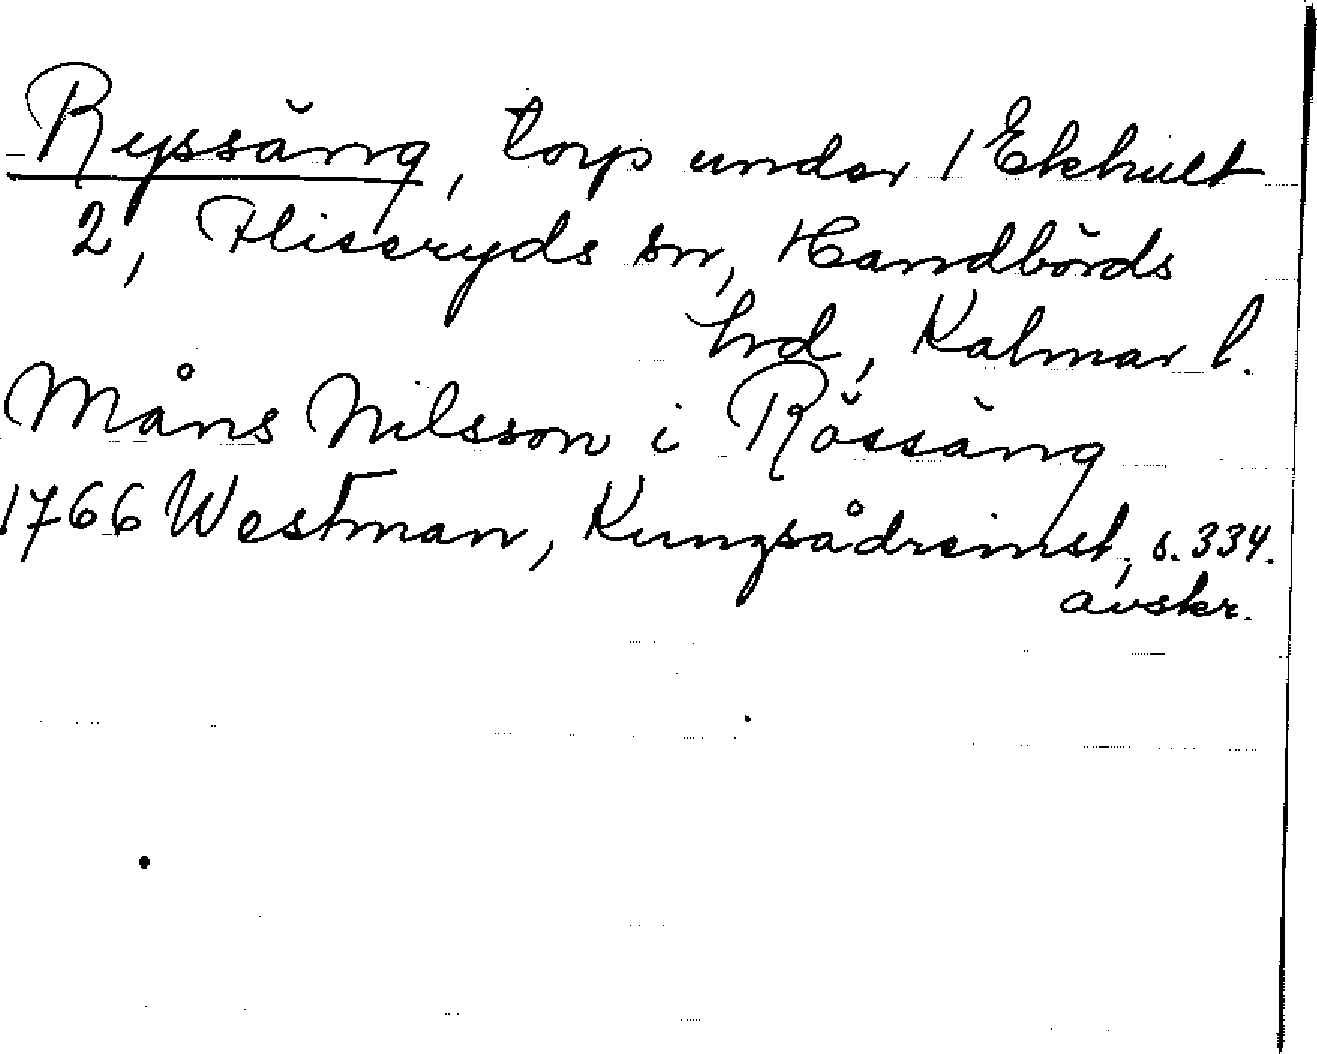 Ryssäng, torp under 1 Ekhult
2, Fliseryds sn, Handbörds
hrd, Kalmar l.
Måns Nilsson i Rössäng
1766 Westman, Kungsådreinst, s. 334.
avskr.